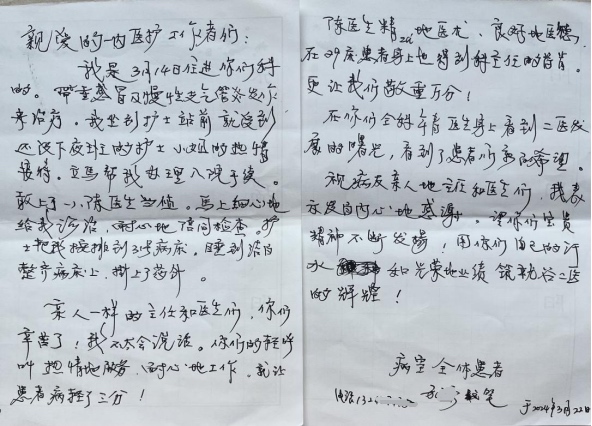 亲爱的一内医护工作者们:
我是3月14日住进你们科
的。带重感冒及慢性支气管炎发作
来治疗。我坐到护士站前就受到
还没下夜班的护士小姐的热情
接待。立马帮我办理入院手续。
敢上了小陈医生当值。马上细心地
给我诊治,耐心地陪同检查。护
士把我安排到35病床。睡到洁白
整齐病床上,掛上了药针。
亲人一样的主任和医生们,你们
辛苦了!我不太会说话。你们的轻呼
叫热情地服务,耐心地工作,就让
患者病轻了三分!
陈医生精湛地医术、良好地医德,
在39床患者身上也得到科主任的首肯。
更让我们敬重万分!
在你们全科年青医生身上看到二医发
展的曙光,看到了患者们家的希望。
视病友亲人地主任和医生们,我表
示发自内心地感谢。望你们宝贵
精神不断发揚!用你们自己的汗
水和光荣地业绩筑就谷二医
的辉煌!
病室全体患者
电话132
执笔
于2024年3月22日